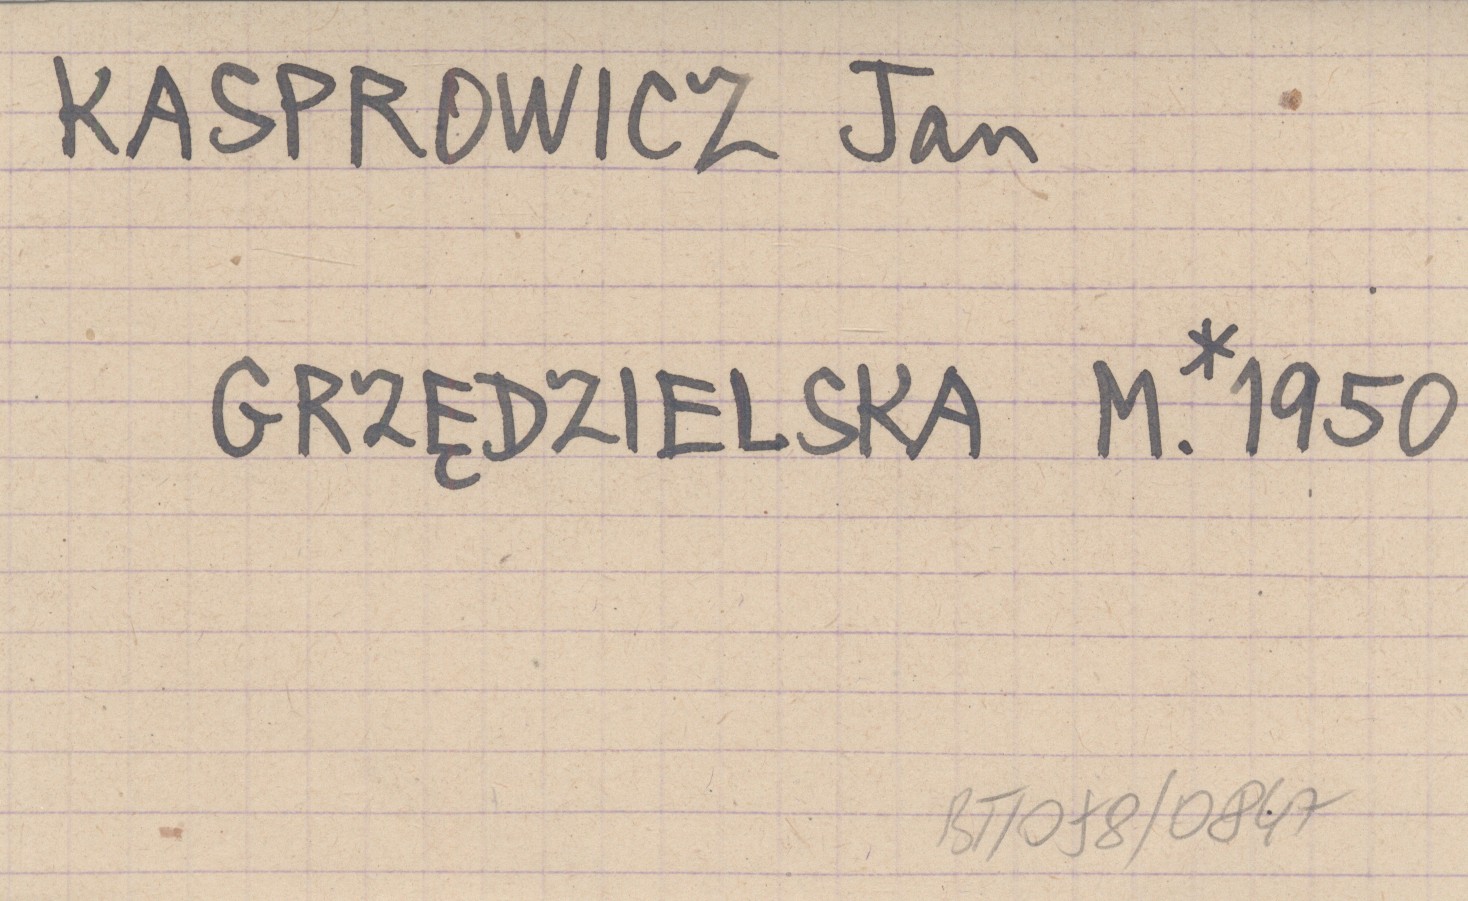 KASPROWICZ Jan
GRZĘDZIELSKA M.*1950
BT/078/0847